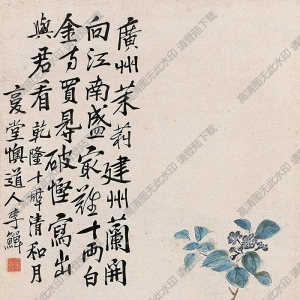 廣州茉莉建州蘭開
向江南盛最難十兩白
金方買得破慳寫出
與君看乾隆十年清和月
复堂懊道人李鱓